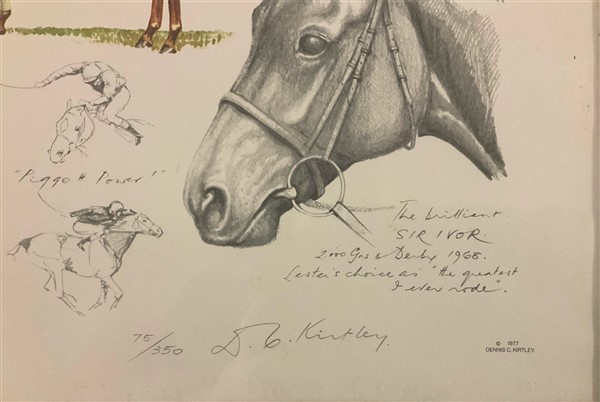 "Piggott Power!"
The brilliant
SIR IVOR.
2.000 Gns & Derby 1968.
Lester's choice as "the greatest
I ever rode".
75/350
D. C. Kirtley.
© 1977
DENNIS C. KIRTLEY.